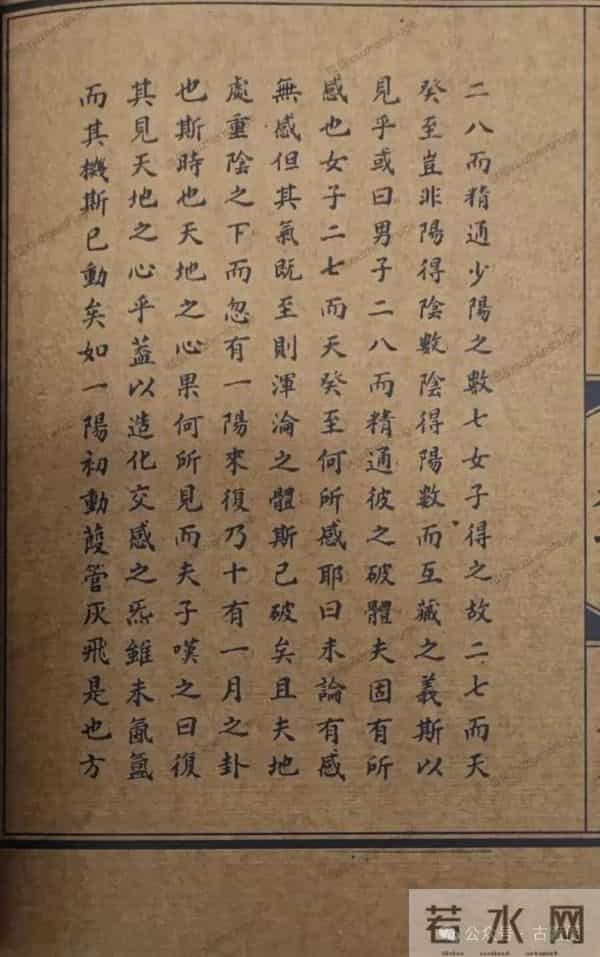 二八而精通少陽之數七女子得之故二七而天
癸至豈非陽得陰數陰得陽數而互藏之義斯以
見乎或曰男子二八而精通彼之破體夫固有所
感也女子二七而天癸至何所感耶曰未論有感
無感但其氣既至則渾淪之體斯已破矣且夫地
處重陰之下而忽有一陽來復乃十有一月之卦
也斯時也天地之心果何所見而夫子嘆之曰復
其見天地之心乎蓋以造化交感之炁雖未氤氳
而其機斯已動矣如一陽初動葭管灰飛是也方
若水网
公众号